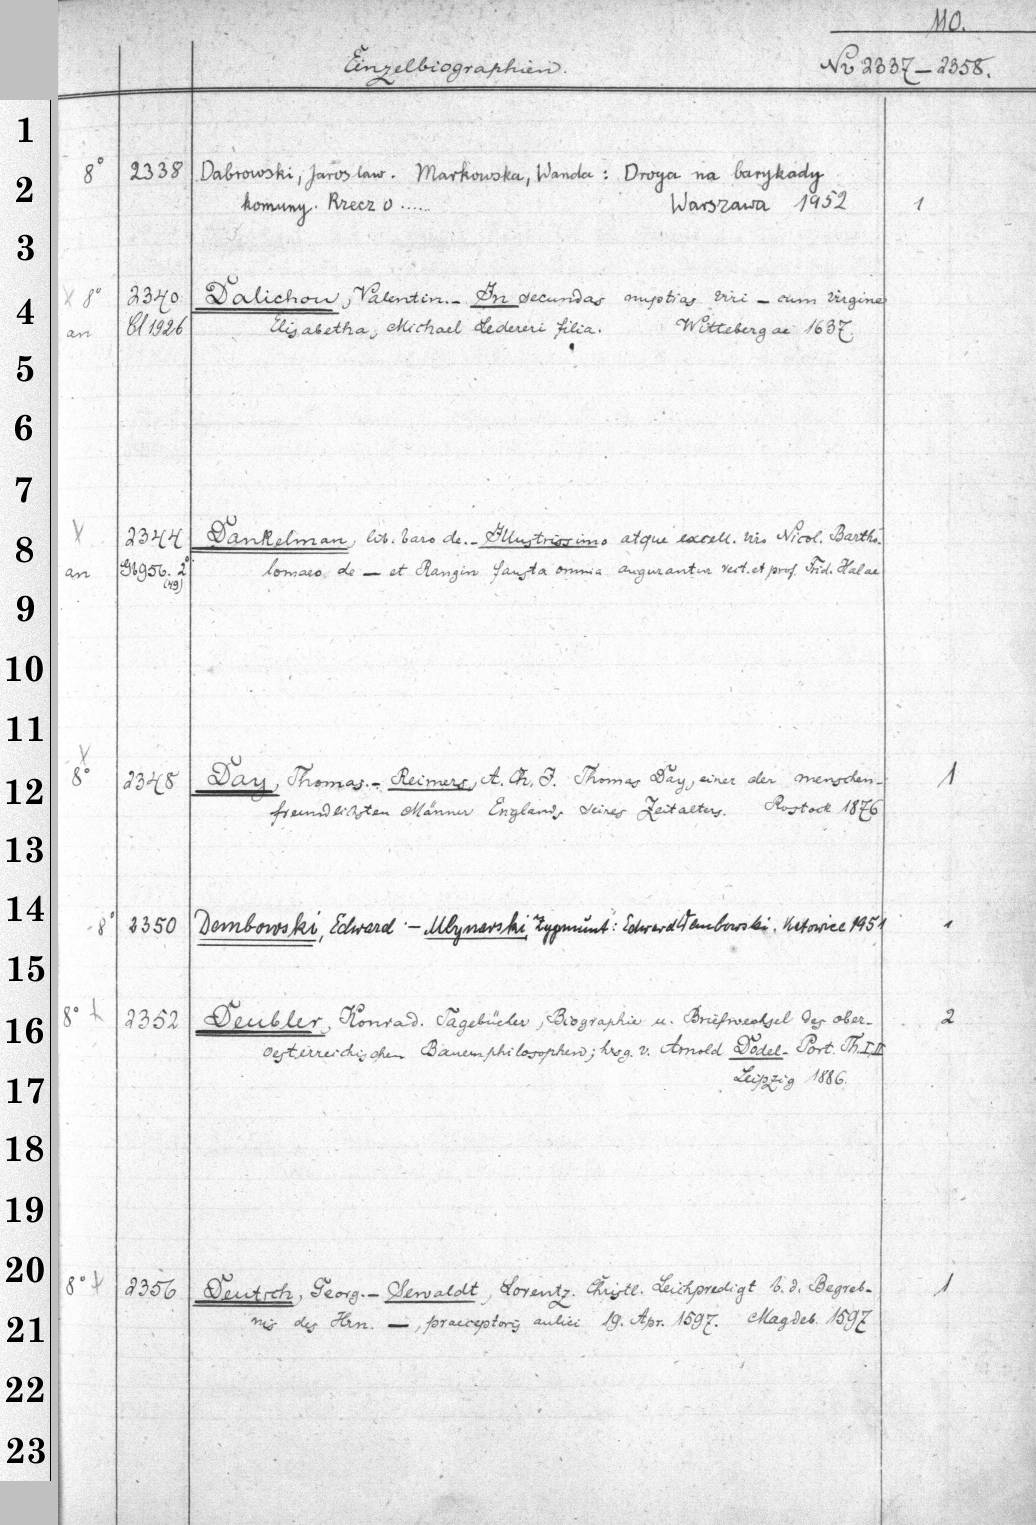 110.
Einzelbiographien. No 2337-2358.
1
2
3
4
5
6
7
8
9
10
11
12
13
14
15
16
17
18
19
20
21
22
23
8° 2338 Dabrowski, Jaroslaw. Markowska, Wanda: Droga na barykady
komuny. Rzecz o ..... Warszawa 1952 1
x 8° 2340 Dalichow, Valentin.- In secundas nuptias viri - cum virgine
an Bl 1926 Elisabetha, Michael Ledereri filia. Wittebergae 1637.
x 2344 Dankelman, lib. baro de.- Illustrissimo atque excell. viro Nicol. Bartho-
an Gb 956. 2° lomaeo de - et Rangin fausta omnia augurantur rect. et prof. Frid. Halae
(49)
x
8° 2348 Day, Thomas.- Reimers, A. Ch. J. Thomas Day, einer der menschen- 1
freundlichsten Männer Englands seines Zeitalters. Rostock 1876
8° 2350 Dembowski, Edward.- Mlynarski, Zygmunt: Edward Dembowski. Katowice 1951 1
8° x 2352 Deubler, Konrad. Tagebücher, Biographie u. Briefwechsel des ober- 2
oesterreichischen Bauernphilosophen; hrsg. v. Arnold Dodel- Port. Th. I, II
Leipzig 1886.
8° x 2356 Deutsch, Georg.- Sewaldt, Lorentz. Christl. Leichpredigt b. d. Begreb- 1
nis des Hrn. -, praeceptoris aulici 19. Apr. 1597. Magdeb. 1597